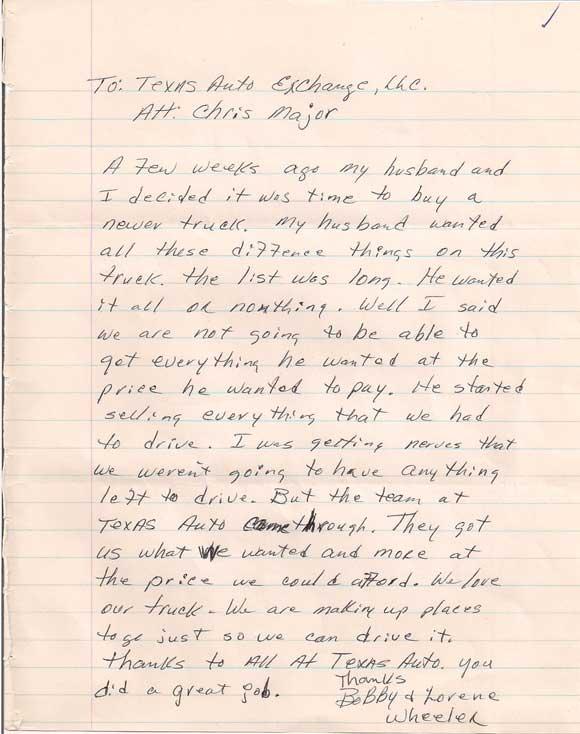 To: Texas Auto Exchange, LLC.
Att: Chris Major
A Few weeks ago my husband and
I decided it was time to buy a
newer truck. My husband wanted
all these diffence things on this
truck. the list was long. He wanted
it all or nonthing. Well I said
we are not going to be able to
get everything he wanted at the
price he wanted to pay. He started
selling everything that we had
to drive. I was getting nerves that
we weren't going to have anything
left to drive. But the team at
Texas Auto came through. They got
us what we wanted and more at
the price we could afford. We love
our truck. We are making up places
to go just so we can drive it.
thanks to All At Texas Auto. you
did a great job.
Thanks
Bobby & Lorene
Wheeler